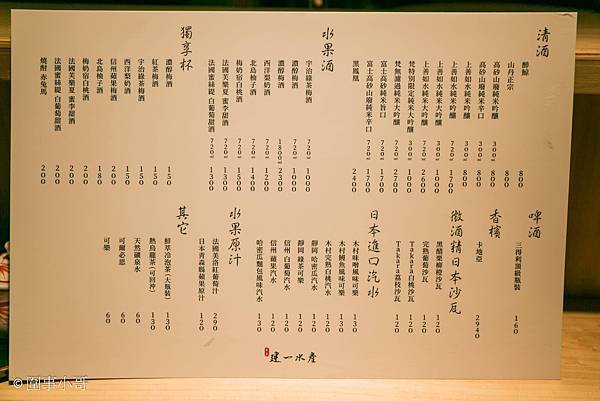 清酒
醉鯨 800
山丹正宗 800
高砂山廢純米辛口 300ml 800
高砂山廢純米辛口 300ml 800
上善如水純米 300ml 800
上善如水純米大吟釀 720ml 1700
上善如水純米大吟釀 720ml 2600
梵特別限定純米大吟釀 300ml 1000
梵無濾過純米大吟釀 720ml 2700
富士高砂山廢純米旨口 720ml 1700
富士高砂山廢純米辛口 720ml 1700
黑鳳凰 2400
水果酒
宇治綠茶梅酒 720ml 1000
濃醇梅酒 720ml 1000
濃醇梅酒 1800ml 2300
西洋梨奶酒 720ml 1200
北島柚子酒 720ml 1400
梅奶宿白桃酒 720ml 1500
法國芙樂夏 蜜李甜酒 720ml 1300
法國蜜絲緹 白葡萄甜酒 720ml 1300
獨享杯
濃醇梅酒 150
紅茶梅酒 150
宇治綠茶梅酒 150
西洋梨奶酒 150
信州蘋果梅酒 200
北島柚子酒 180
梅奶宿白桃酒 200
法國芙樂夏 蜜李甜酒 200
法國蜜絲緹 白葡萄甜酒 200
燒酎 赤兔馬 200
啤酒
三得利頂級瓶裝 160
香檳
卡地亞 2940
微酒精日本沙瓦
黑醋栗柳橙沙瓦 120
完熟葡萄沙瓦 120
Takara白桃沙瓦 120
Takara荔枝沙瓦 120
日本進口汽水
木村味噌風味可樂 130
木村鰻魚風味可樂 130
木村完熟白桃汽水 120
靜岡 哈密瓜汽水 120
靜岡 綠茶可樂 120
信州 白葡萄汽水 120
信州 蘋果汽水 120
哈密瓜麵包風味汽水 130
水果原汁
法國美洛紅葡萄汁 290
日本青森縣蘋果原汁 120
其它
鮮萃冷泡茶(大瓶裝) 130
熱烏龍茶(可回沖) 130
天然礦泉水 60
可爾必思 60
可樂 60
建一水產
© 囧事小哥